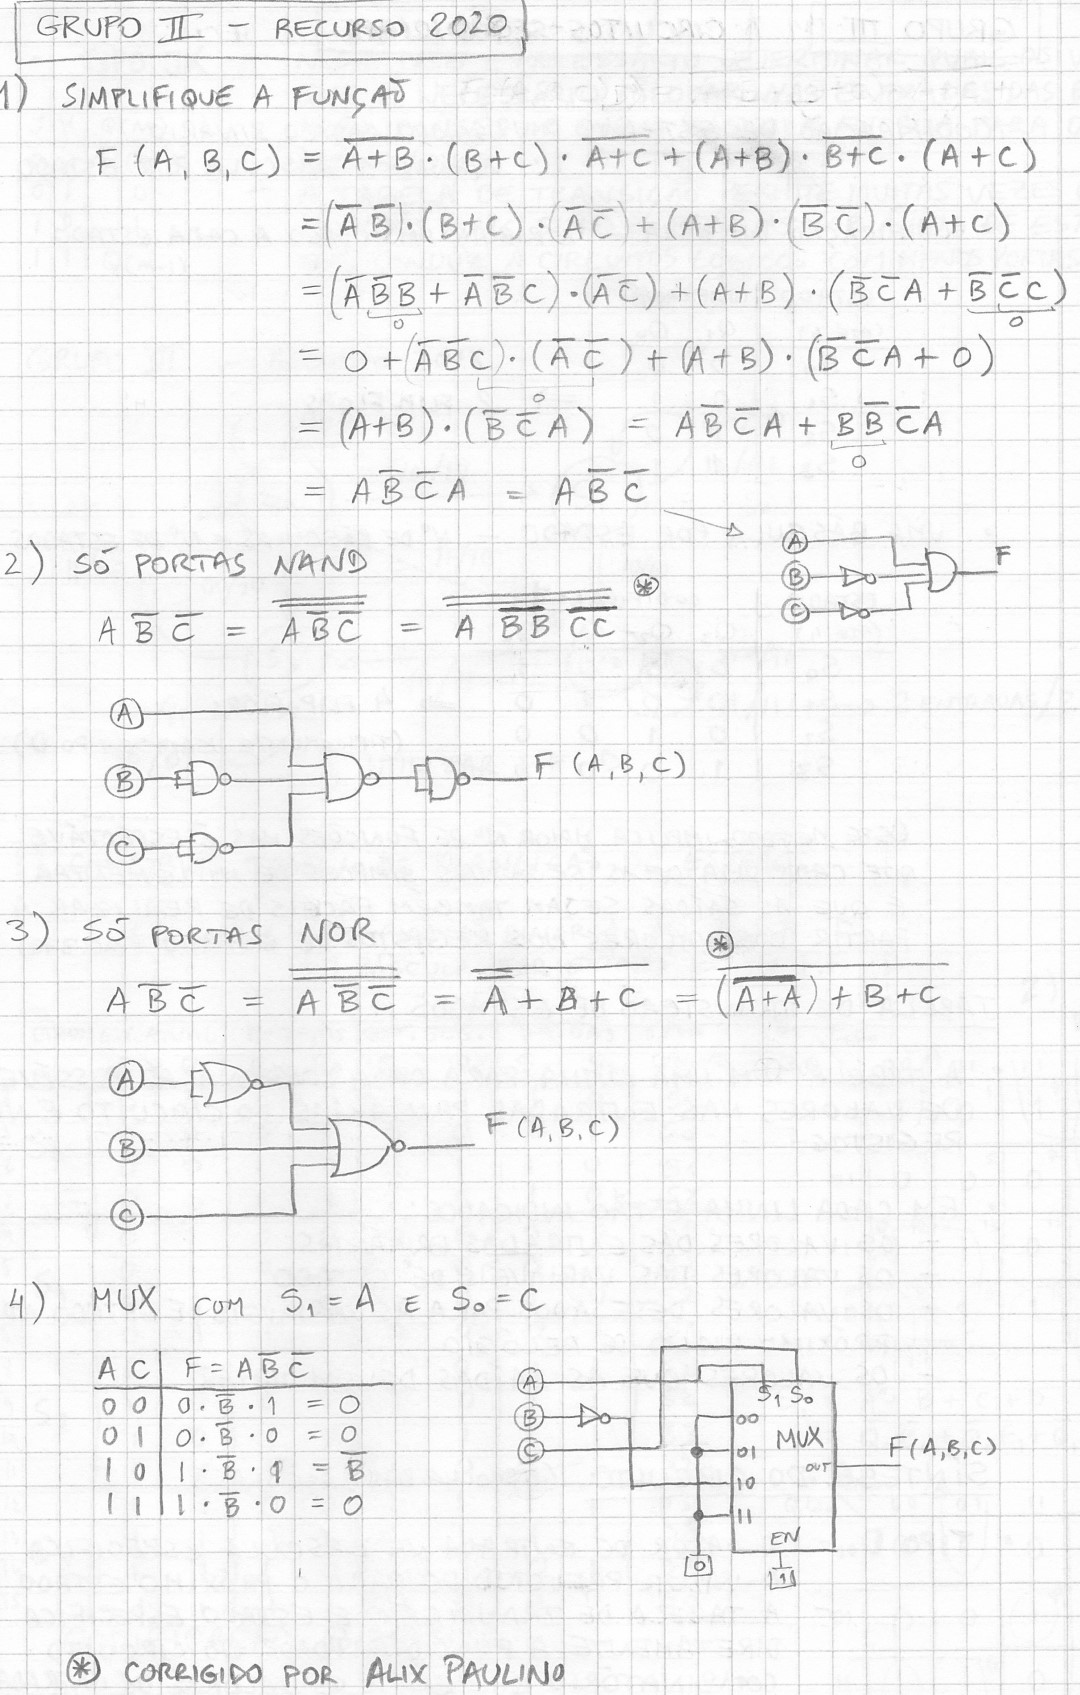 GRUPO II - RECURSO 2020
1) SIMPLIFIQUE A FUNÇÃO
F (A, B, C) = A̅+̅B̅ · (B+C) · A̅+̅C̅ + (A+B) · B̅+̅C̅ · (A+C)
= (A̅ B̅) · (B+C) · (A̅ C̅) + (A+B) · (B̅ C̅) · (A+C)
= (A̅ B̅ B + A̅ B̅ C) · (A̅ C̅) + (A+B) · (B̅ C̅ A + B̅ C̅ C)
0 0
= 0 + (A̅ B̅ C) · (A̅ C̅) + (A+B) · (B̅ C̅ A + 0)
0
= (A+B) · (B̅ C̅ A) = A B̅ C̅ A + B B̅ C̅ A
0
= A B̅ C̅ A = A B̅ C̅
A
B
C
F
2) SÓ PORTAS NAND
A B̅ C̅ = A̿ B̿̅ C̿̅ = A̿ B̿̅B̿̅ C̿̅C̿̅ *
A
B
C
F (A, B, C)
3) SÓ PORTAS NOR
*
A B̅ C̅ = A̿ B̿̅ C̿̅ = A̿̅ +̅ B̅ +̅ C̅ = (̅A̿+̿A̿)̅ +̅ B̅ +̅ C̅
A
B
C
F (A, B, C)
4) MUX COM S₁ = A E S₀ = C
A C F = A B̅ C̅
0 0 0 · B̅ · 1 = 0
0 1 0 · B̅ · 0 = 0
1 0 1 · B̅ · 1 = B̅
1 1 1 · B̅ · 0 = 0
A
B
C
S₁ S₀
00
01 MUX
OUT
10
11
EN
F(A, B, C)
0
1
* CORRIGIDO POR ALIX PAULINO